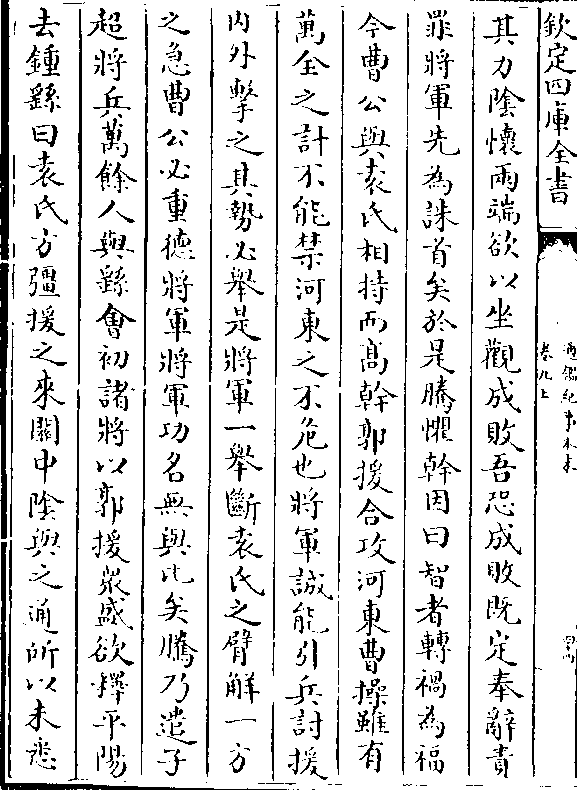 欽定四庫全書
通鑑紀事本末
卷九上
其力陰懷兩端欲以坐觀成敗吾恐成敗既定奉辭責
罪將軍先為誅首矣於是騰懼幹因曰智者轉禍為福
今曹公與袁氏相持而髙幹郭援合攻河東曹操雖有
萬全之計不能禁河東之不危也將軍誠能引兵討援
内外擊之其勢必舉是將軍一舉斷袁氏之臂解一方
之急曹公必重德將軍將軍功名無與比矣騰乃遣子
超將兵萬餘人與繇會初諸將以郭援衆盛欲釋平陽
去鍾繇曰袁氏方彊援之來關中陰與之通所以未悉